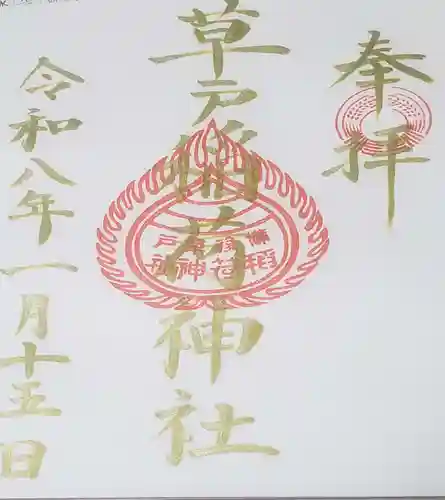 奉拝
草戸稲荷神社
備後草戸
稲荷神社
令和八年一月十五日